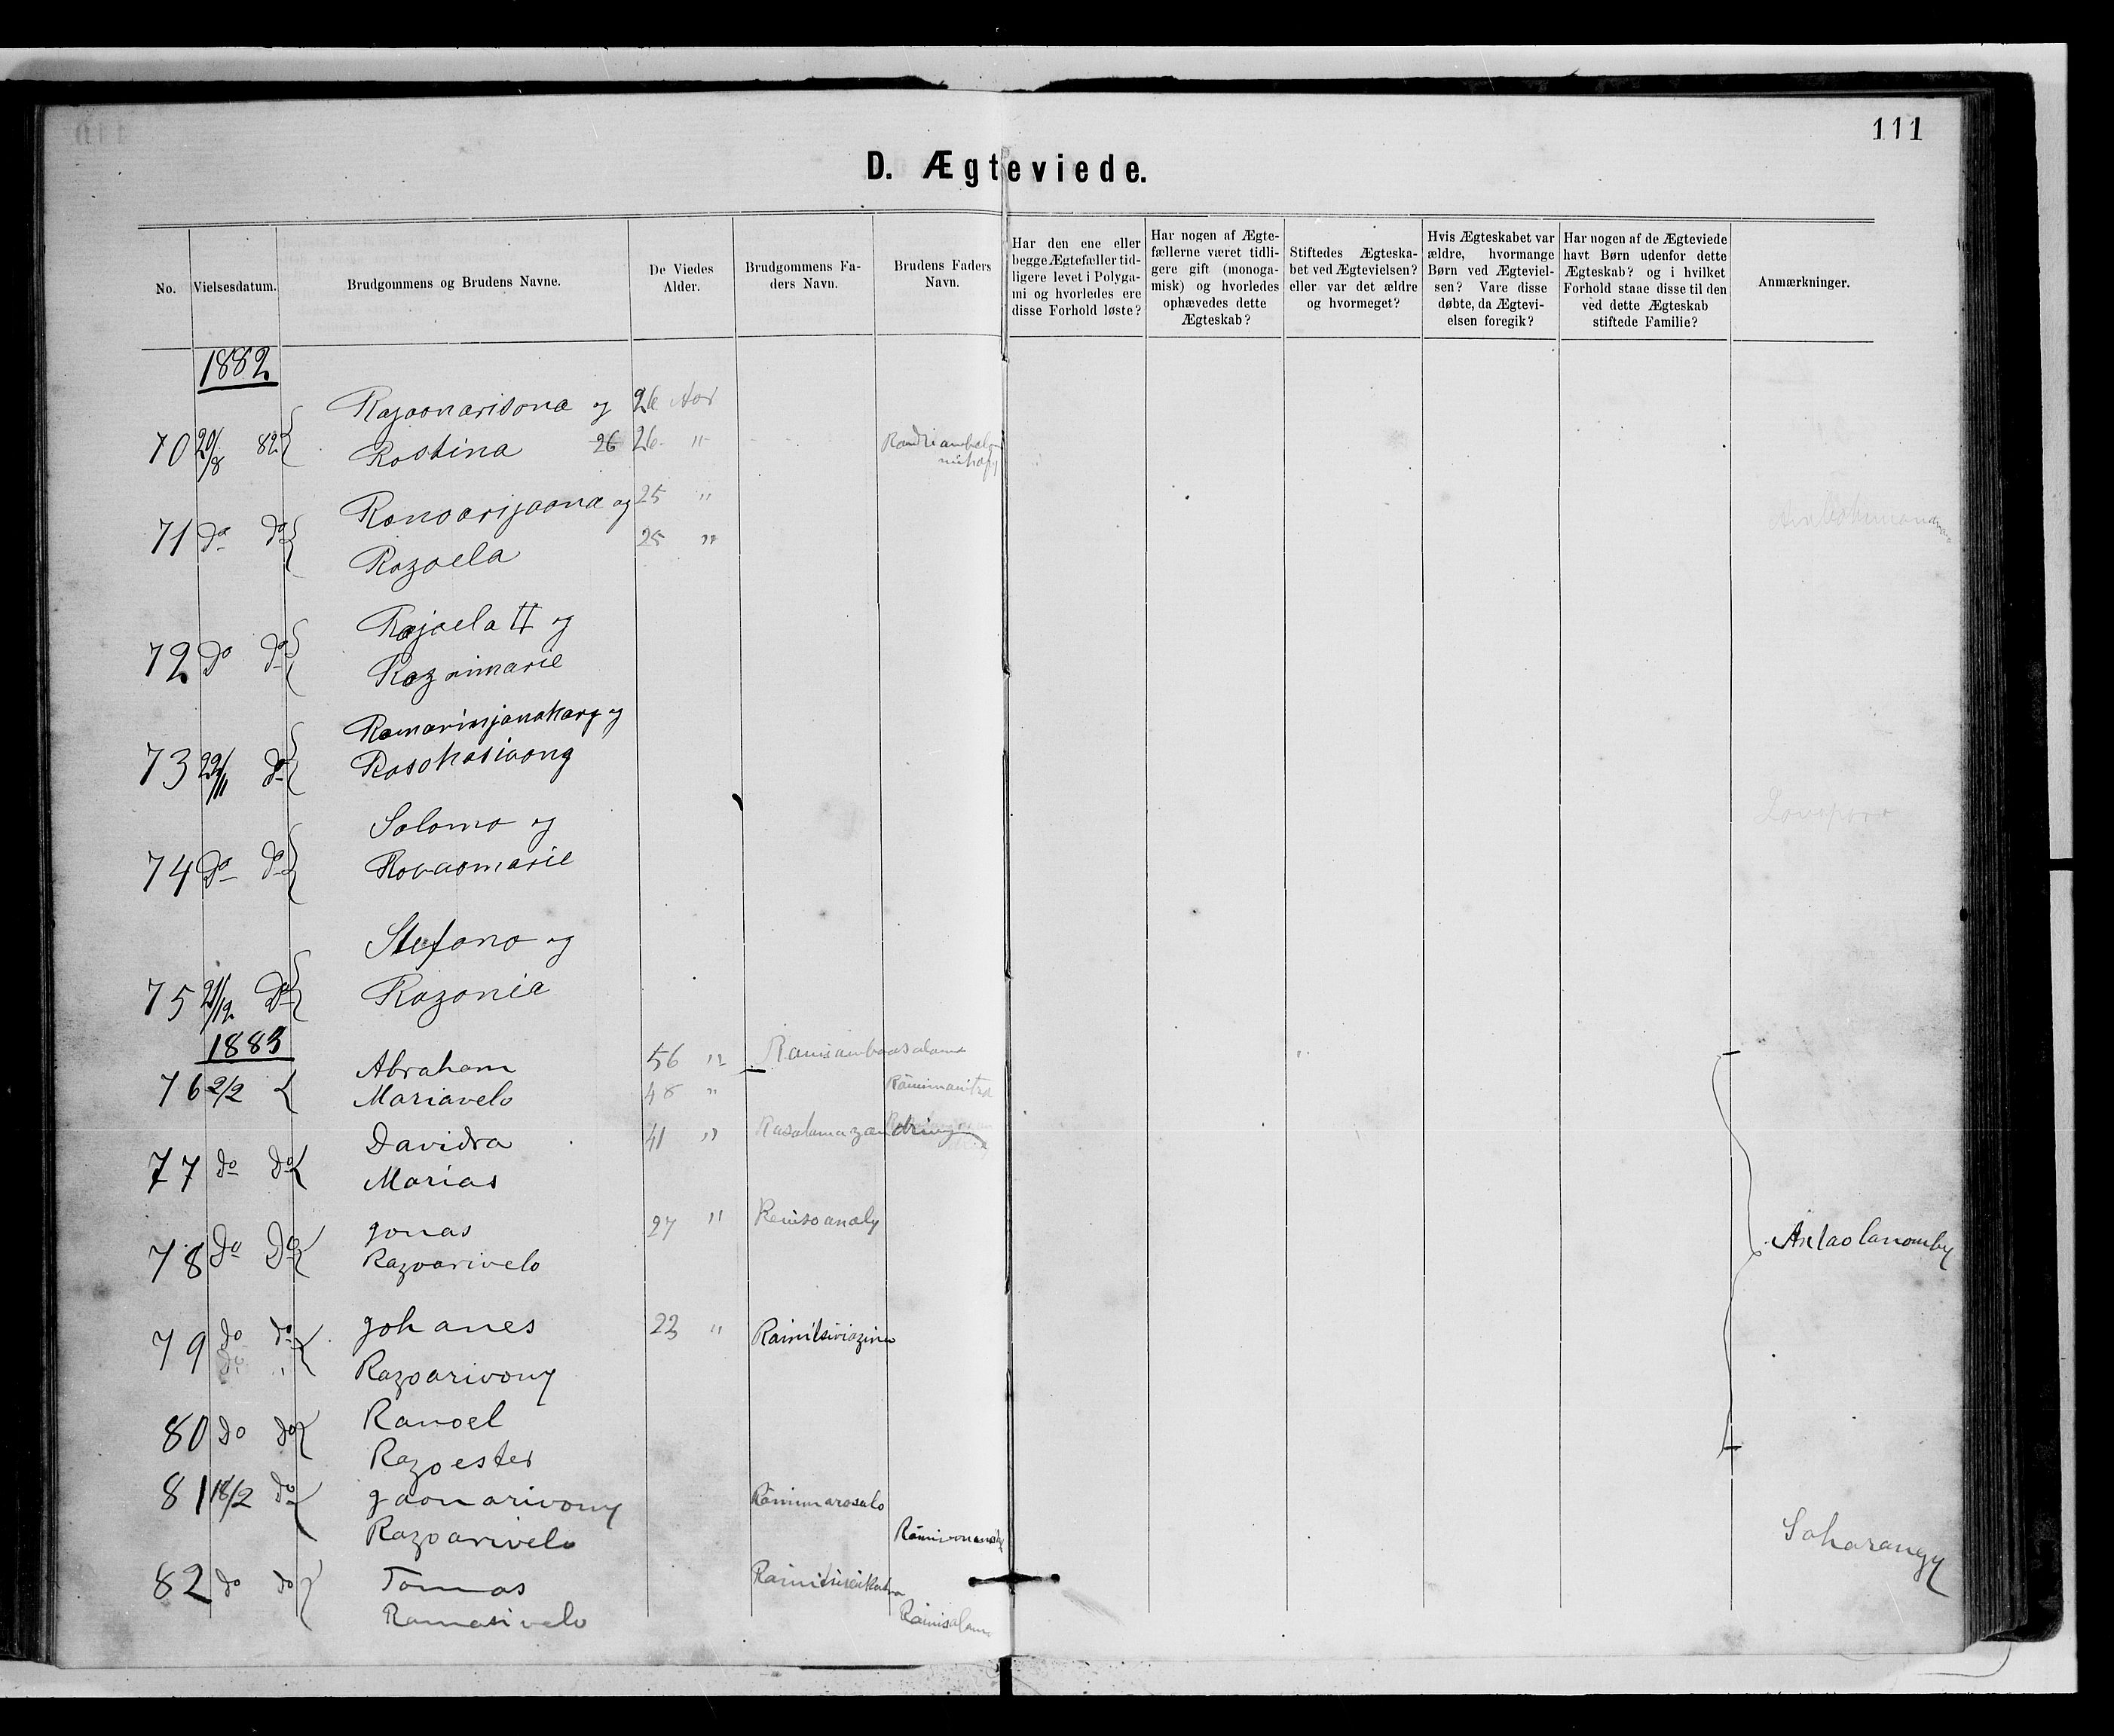 111
D. Ægteviede.
No.
Vielsesdatum.
Brudgommens og Brudens Navne.
De Viedes
Alder.
Brudgommens Fa-
ders Navn.
Brudens Faders
Navn.
Har den ene eller
begge Ægtefæller tid-
ligere levet i Polyga-
mi og hvorledes ere
disse Forhold løste?
Har nogen af Ægte-
fællerne været tidli-
gere gift (monoga-
misk) og hvorledes
ophævedes dette
Ægteskab?
Stiftedes Ægteska-
bet ved Ægtevielsen?
eller var det ældre
og hvormeget?
Hvis Ægteskabet var
ældre, hvormange
Børn ved Ægteviel-
sen? Vare disse
døbte, da Ægtevi-
elsen foregik?
Har nogen af de Ægteviede
havt Børn udenfor dette
Ægteskab? og i hvilket
Forhold staae disse til den
ved dette Ægteskab
stiftede Familie?
Anmærkninger.
1882
Rajaonarisona og 26 Aar
70 20/8 82 Rastina 26 26 "
Ranoarijaona og 25 "
71 do do Razaela 25 "
Rajaela II og
72 do do Razaimarie
73 22/11 do Rasohasiaony
Salomo og
74 do do Ravaomarie
Stefano og
75 21/12 do Razania
1883
Abraham 56 "
76 2/2 Mariavelo 48 " Rainimanitra
Davidra 41 " Rasalamazandriny
77 do do Marias
Jonas 27 " Rainisoanaly
78 do do Razoarivelo
Antaolanomby
Johanes 23 "
79 do do Razoarivony
do "
Ranoel
80 do do Razoester
81 18/2 do Jaonarivony Rainimarosalo
Razoarivelo
Soharangy
82 do do Tomas
Ramasivelo Rainisalama